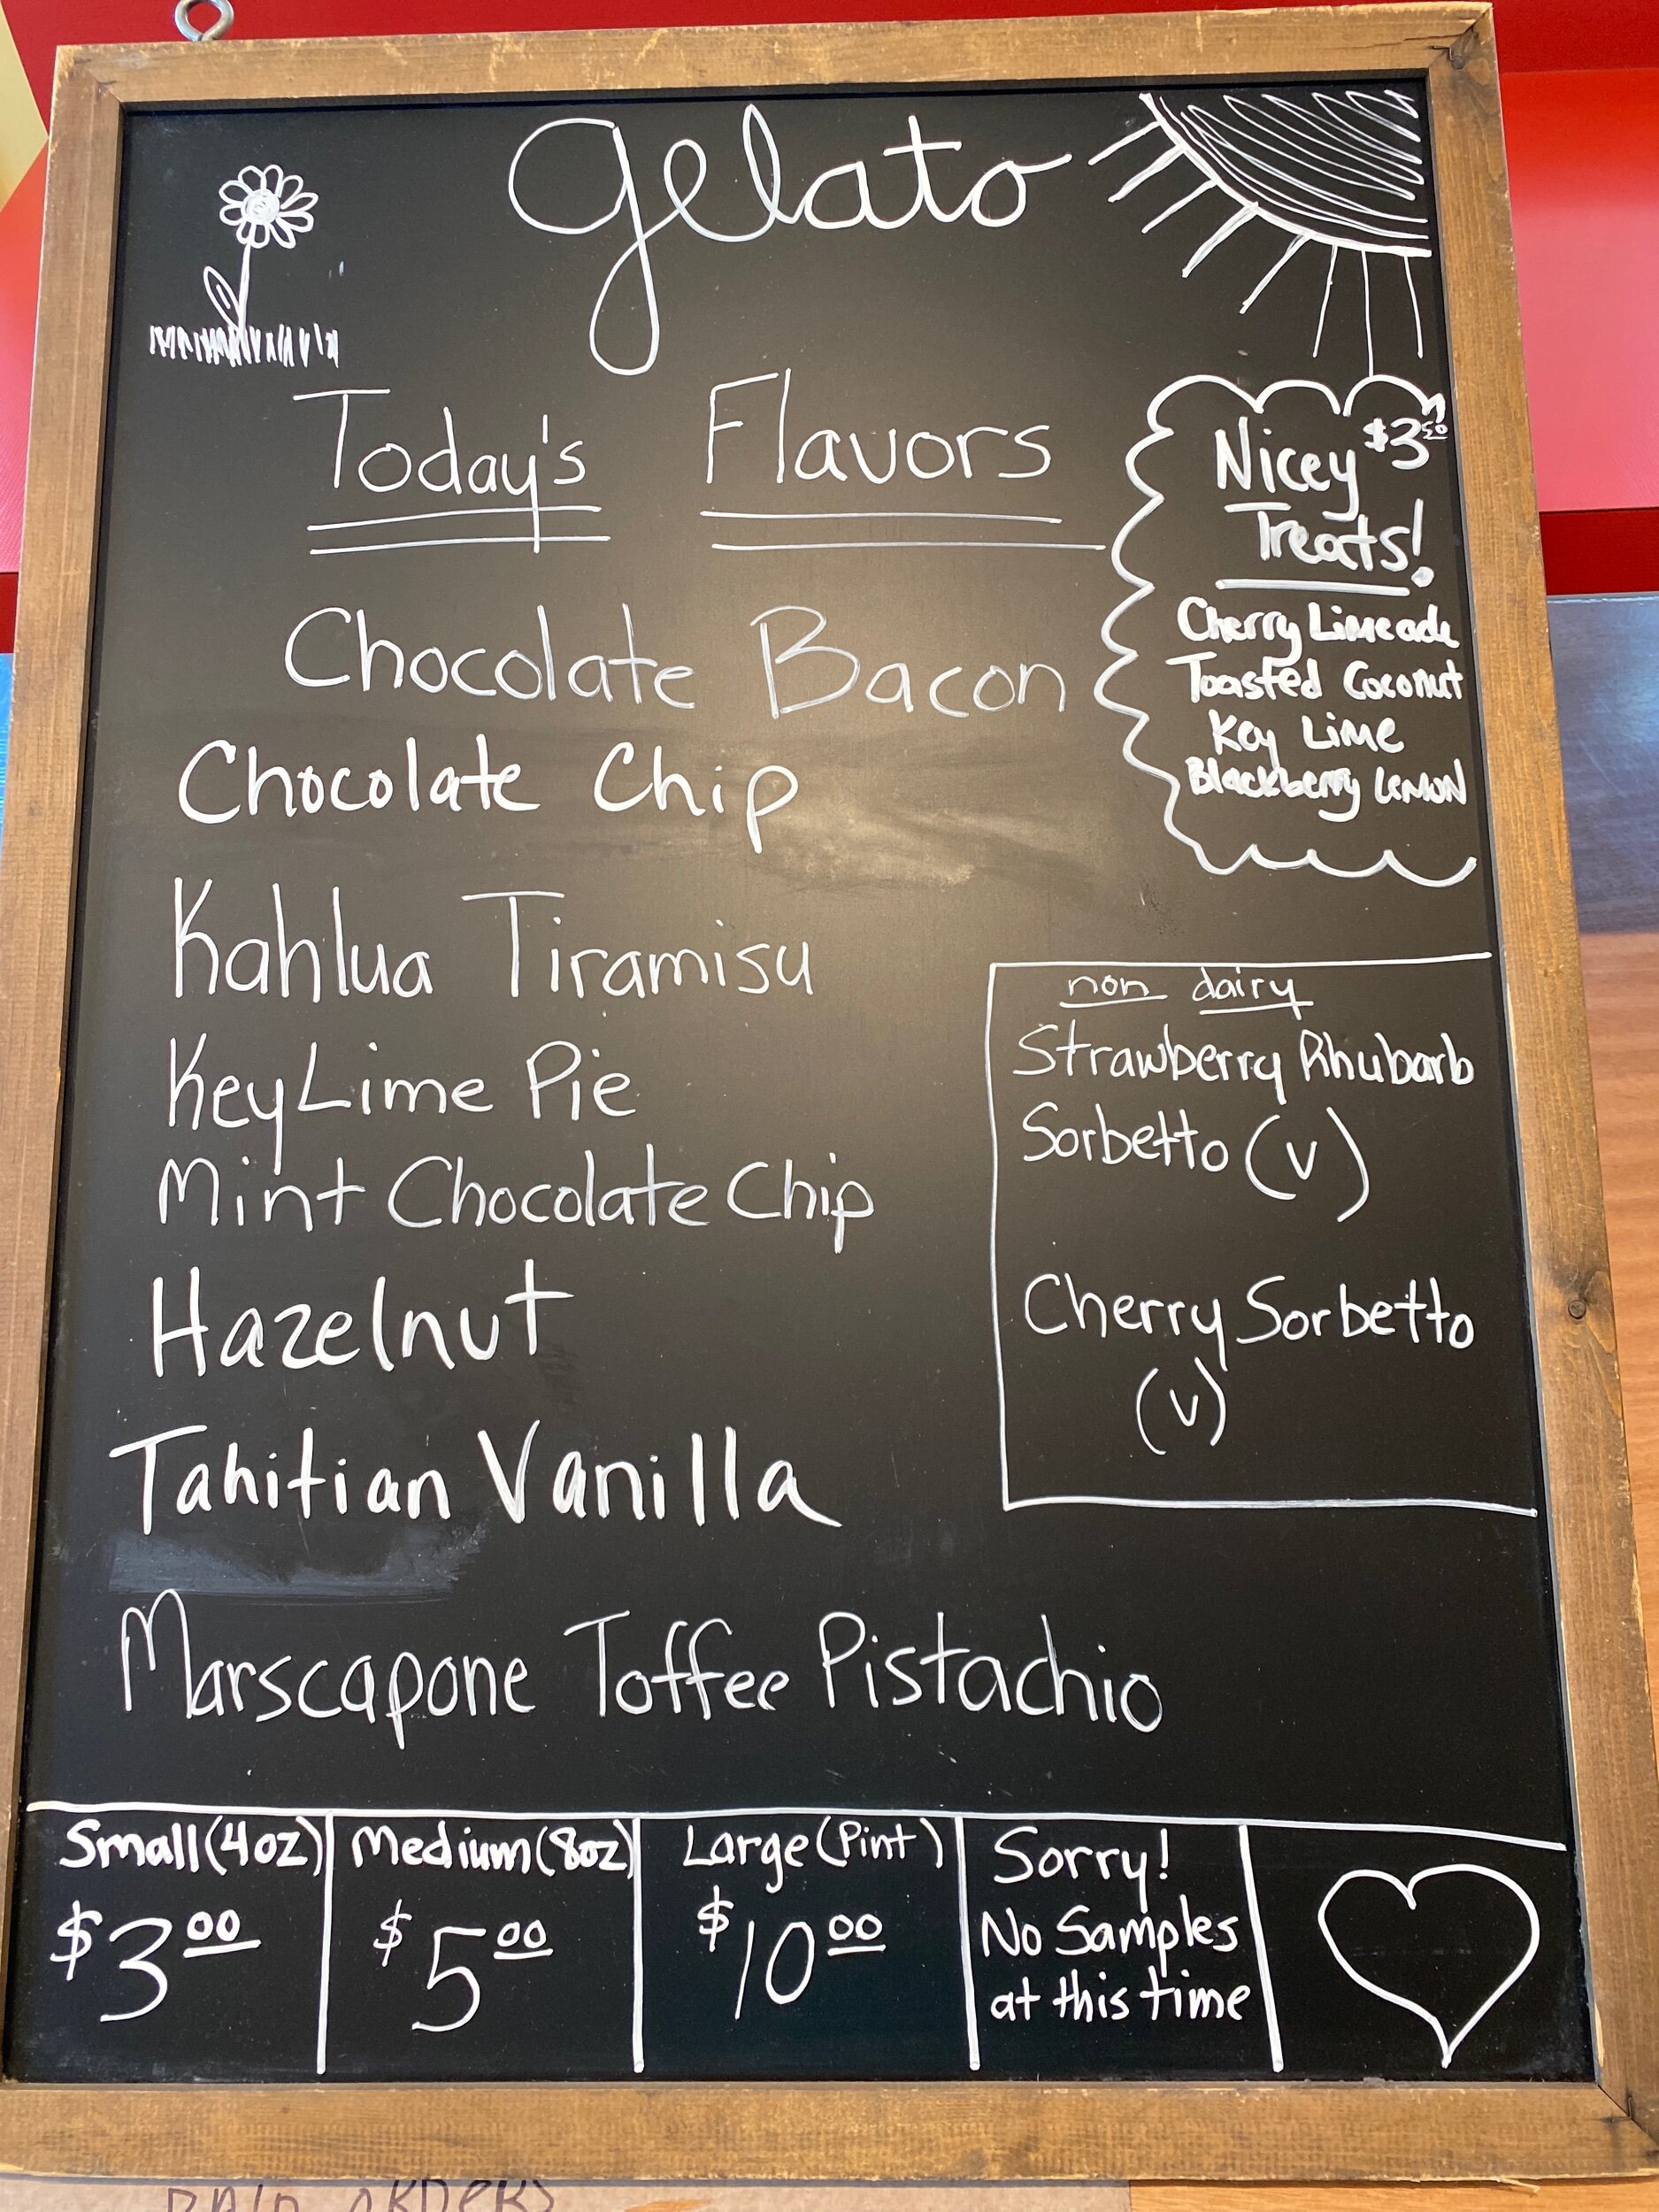 Gelato
Today's Flavors
Chocolate Bacon
Chocolate Chip
Kahlua Tiramisu
Key Lime Pie
Mint Chocolate Chip
Hazelnut
Tahitian Vanilla
Marscapone Toffee Pistachio
Nicey $3.50
Treats!
Cherry Limeade
Toasted Coconut
Key Lime
Blackberry LEMON
non dairy
Strawberry Rhubarb
Sorbetto (V)
Cherry Sorbetto
(V)
Small (4oz)
$3.00
Medium (8oz)
$5.00
Large (Pint)
$10.00
Sorry!
No Samples
at this time